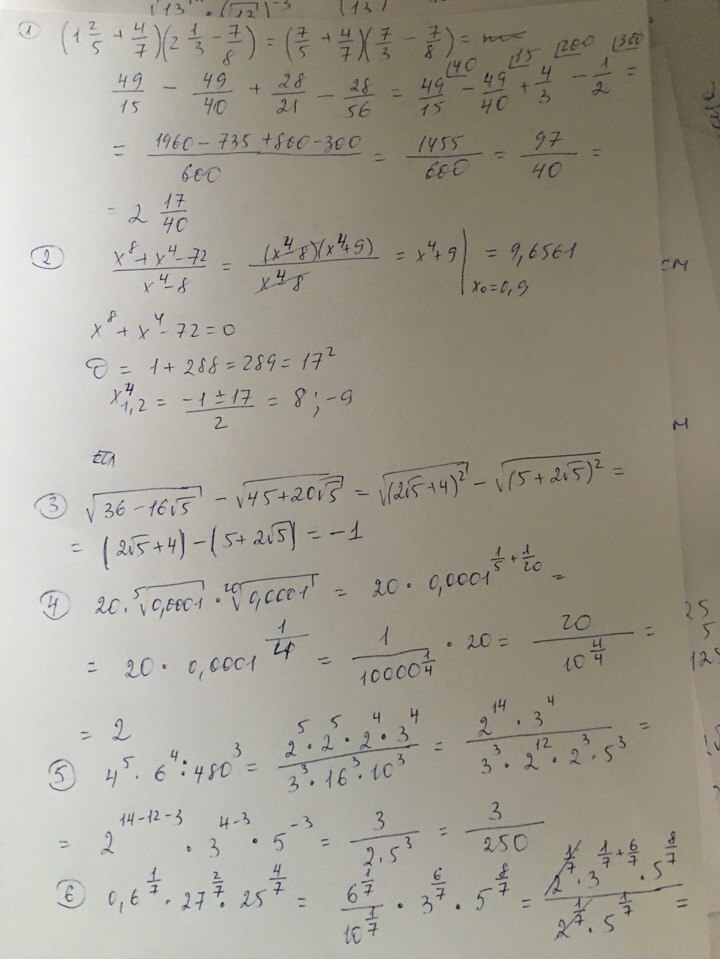 ① (1 2/5 + 4/7)(2 1/3 - 7/8) = (7/5 + 4/7)(7/3 - 7/8) =
49/15 - 49/40 + 28/21 - 28/56 = 49/15 ⌊40 - 49/40 ⌊15 + 4/3 ⌊200 - 1/2 ⌊300 =
= (1960 - 735 + 800 - 300)/600 = 1455/600 = 97/40 =
= 2 17/40
② (x⁸ + x⁴ - 72)/(x⁴ - 8) = (x⁴ - 8)(x⁴ + 9)/(x⁴ - 8) = x⁴ + 9 | x₀=0,9 = 9,6561
x⁸ + x⁴ - 72 = 0
D = 1 + 288 = 289 = 17²
x⁴₁,₂ = (-1 ± 17)/2 = 8 ; -9
③ √(36 - 16√5) - √(45 + 20√5) = √((2√5 + 4)²) - √((5 + 2√5)²) =
= (2√5 + 4) - (5 + 2√5) = -1
④ 20 · ⁵√0,0001 · ²⁰√0,0001 = 20 · 0,0001^(1/5 + 1/20) =
= 20 · 0,0001^(1/4) = 1/10000^(1/4) · 20 = 20/10^(4/4) =
= 2
⑤ 4⁵ · 6⁴ : 480³ = (2⁵ · 2⁵ · 2⁴ · 3⁴)/(3³ · 16³ · 10³) = (2¹⁴ · 3⁴)/(3³ · 2¹² · 2³ · 5³) =
= 2^(14-12-3) · 3^(4-3) · 5^(-3) = 3/(2 · 5³) = 3/250
⑥ 0,6^(1/7) · 27^(2/7) · 25^(4/7) = 6^(1/7)/10^(1/7) · 3^(6/7) · 5^(8/7) = (2^(1/7) · 3^(1/7 + 6/7) · 5^(8/7))/(2^(1/7) · 5^(1/7)) =